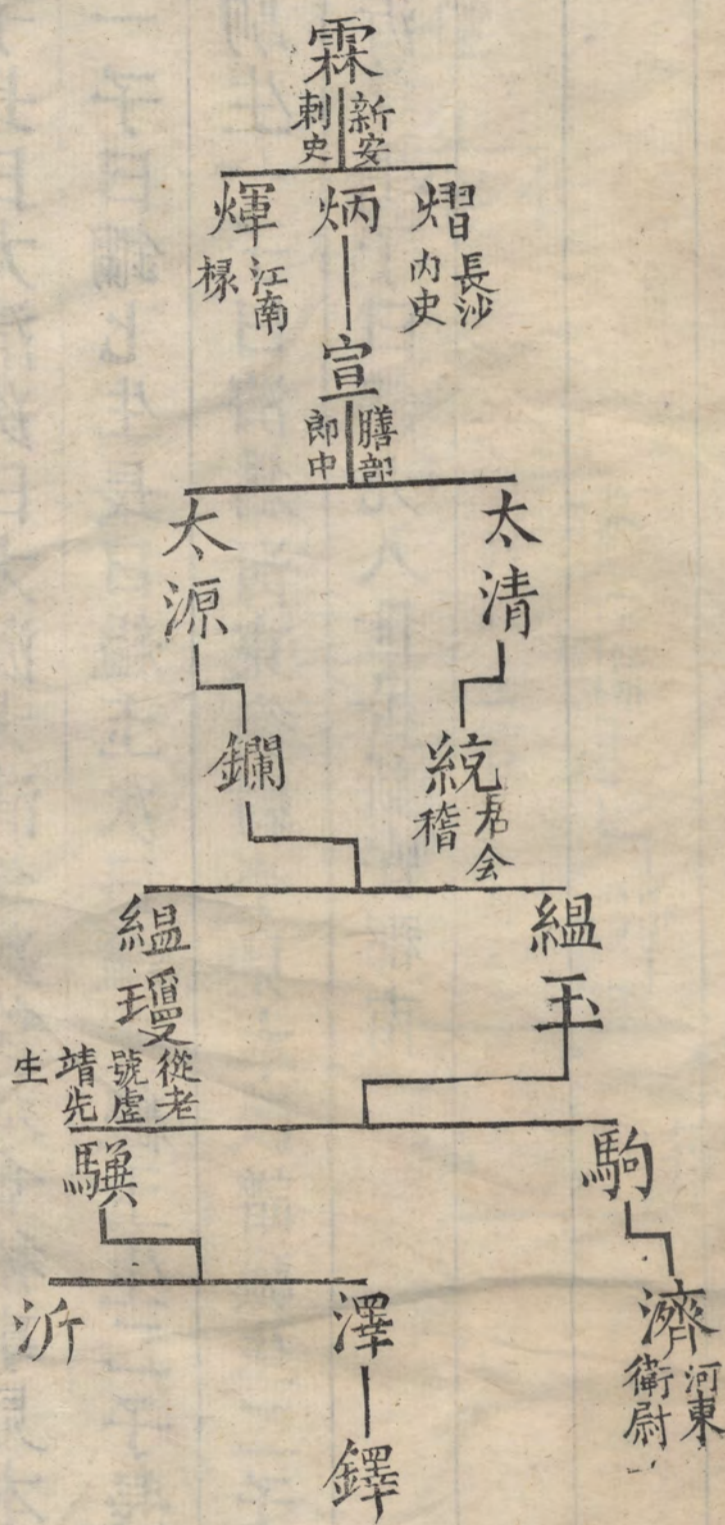 霖
新安
刺史
熠
長沙
内史
炳
煇
江南
椽
宣
膳部
郎中
太清
太源
統
居会
稽
鑭
緼玉
緼瓊
從老
號虛
靖先
生
駒
騏
濟
河東
衛尉
澤
沂
鐸